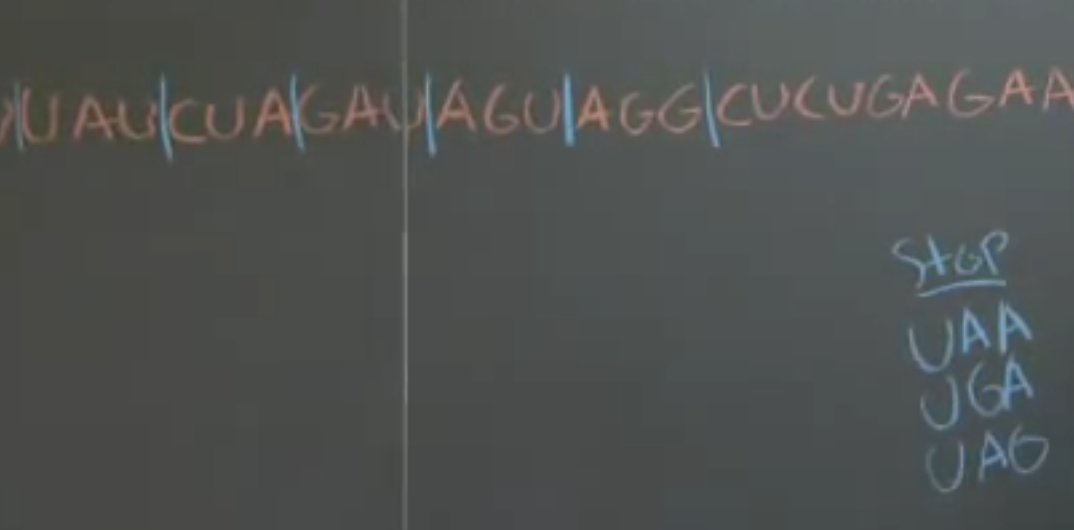 U|UAU|CUA|GAU|AGU|AGG|CUCUGAGAA
StOP
UAA
UGA
UAG